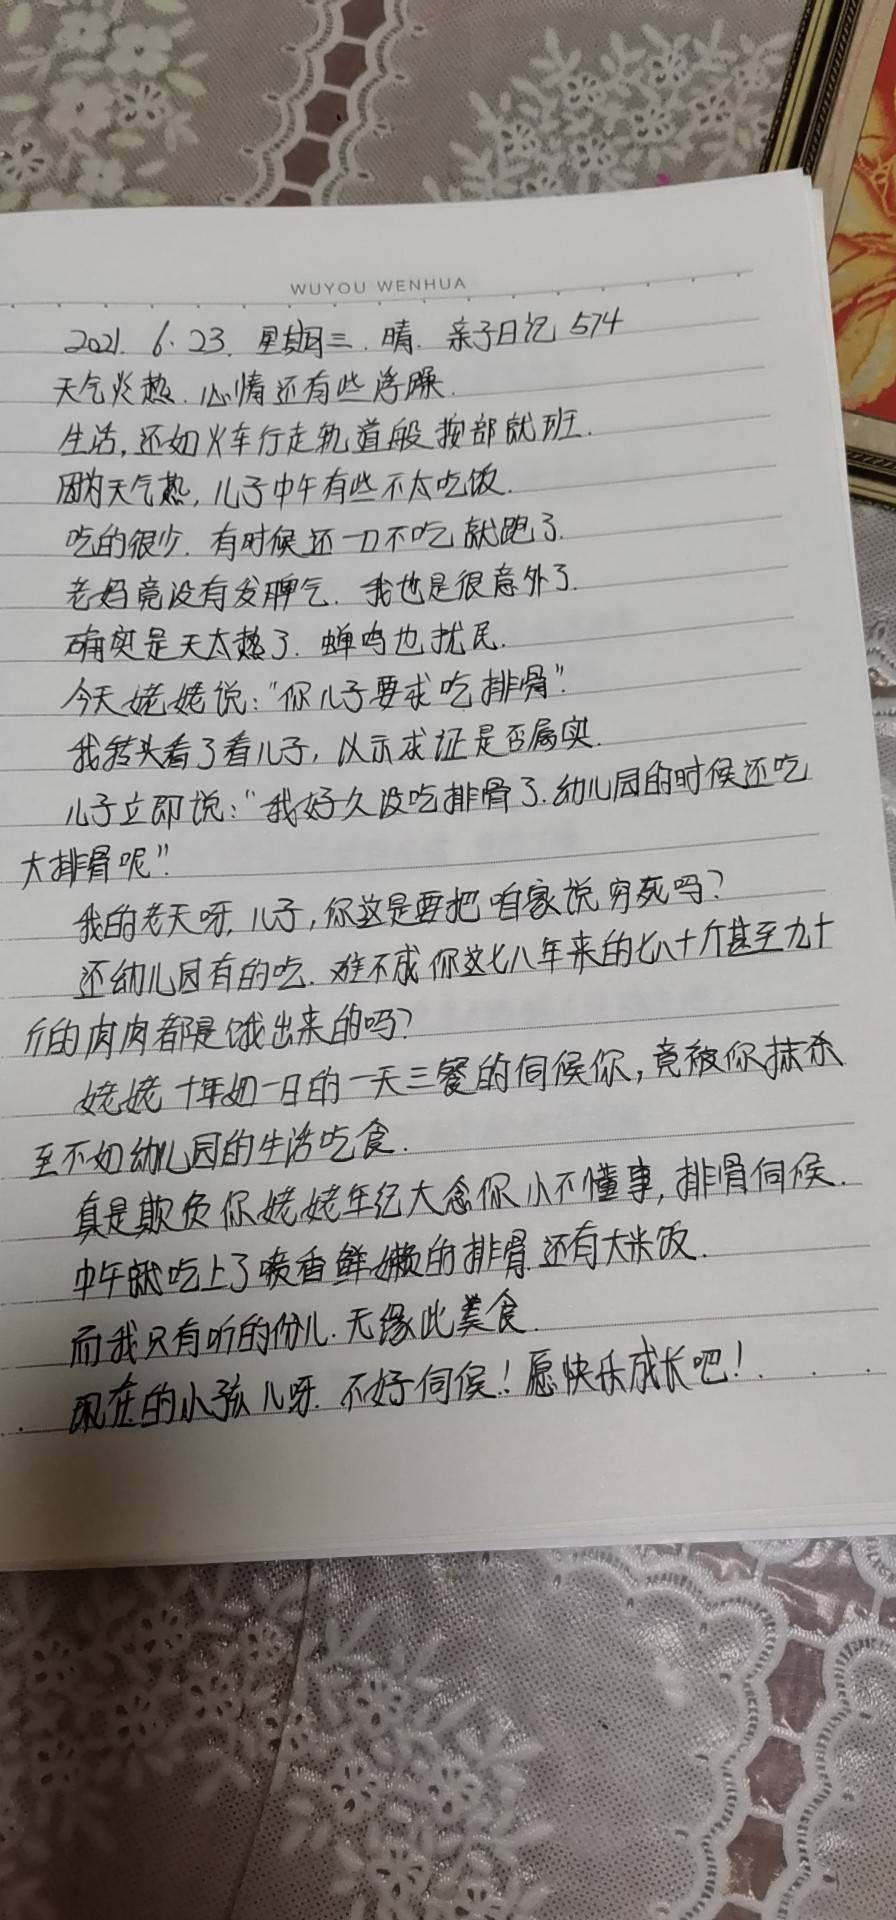 WUYOU WENHUA
2021. 6. 23. 星期三. 晴. 亲子日记 574
天气炎热. 心情还有些浮躁.
生活, 还如火车行走轨道般按部就班.
因为天气热, 儿子中午有些不太吃饭.
吃的很少. 有时候还一口不吃就跑了.
老妈竟没有发脾气. 我也是很意外了.
确实是天太热了. 蝉鸣也扰民.
今天姥姥说: "你儿子要求吃排骨".
我转头看了看儿子, 以示求证是否属实.
儿子立即说: "我好久没吃排骨了. 幼儿园的时候还吃
大排骨呢".
我的老天呀, 儿子, 你这是要把咱家说穷死吗?
还幼儿园有的吃. 难不成你这七八年来的七八十斤甚至九十
斤的肉肉都是饿出来的吗?
姥姥十年如一日的一天三餐的伺候你, 竟被你抹杀
至不如幼儿园的生活吃食.
真是欺负你姥姥年纪大念你小不懂事, 排骨伺候.
中午就吃上了喷香鲜嫩的排骨还有大米饭.
而我只有听的份儿. 无缘此美食.
现在的小孩儿呀. 不好伺候! 愿快乐成长吧!